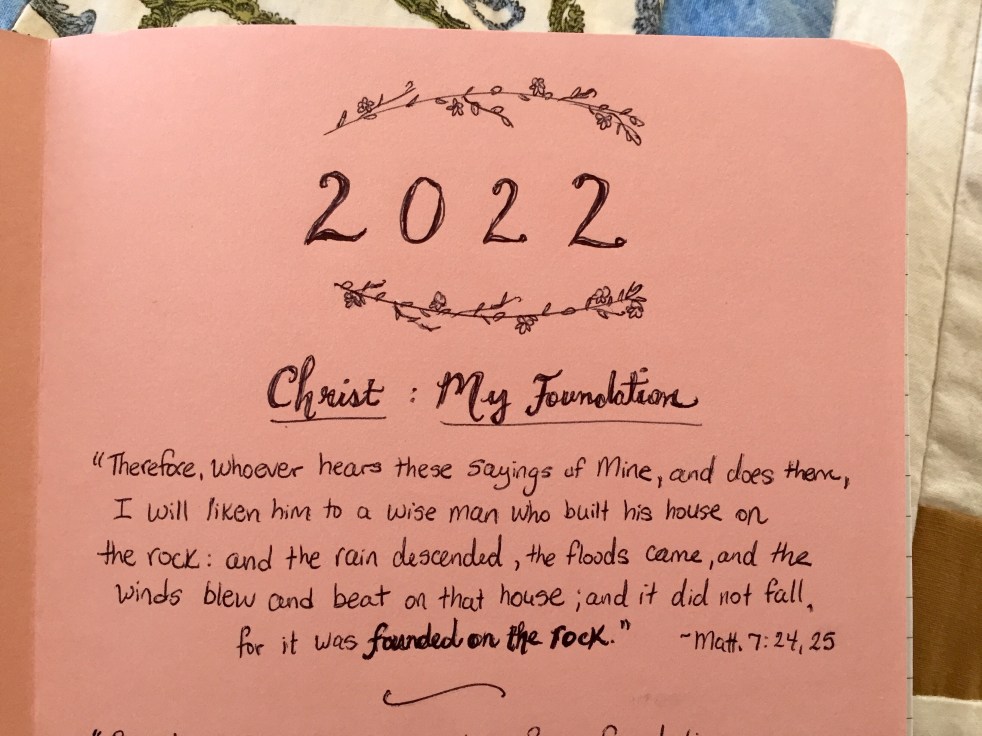 2022
Christ : My Foundation
"Therefore, whoever hears these sayings of Mine, and does them,
I will liken him to a wise man who built his house on
the rock: and the rain descended, the floods came, and the
winds blew and beat on that house; and it did not fall,
for it was founded on the rock." ~Matt. 7:24, 25